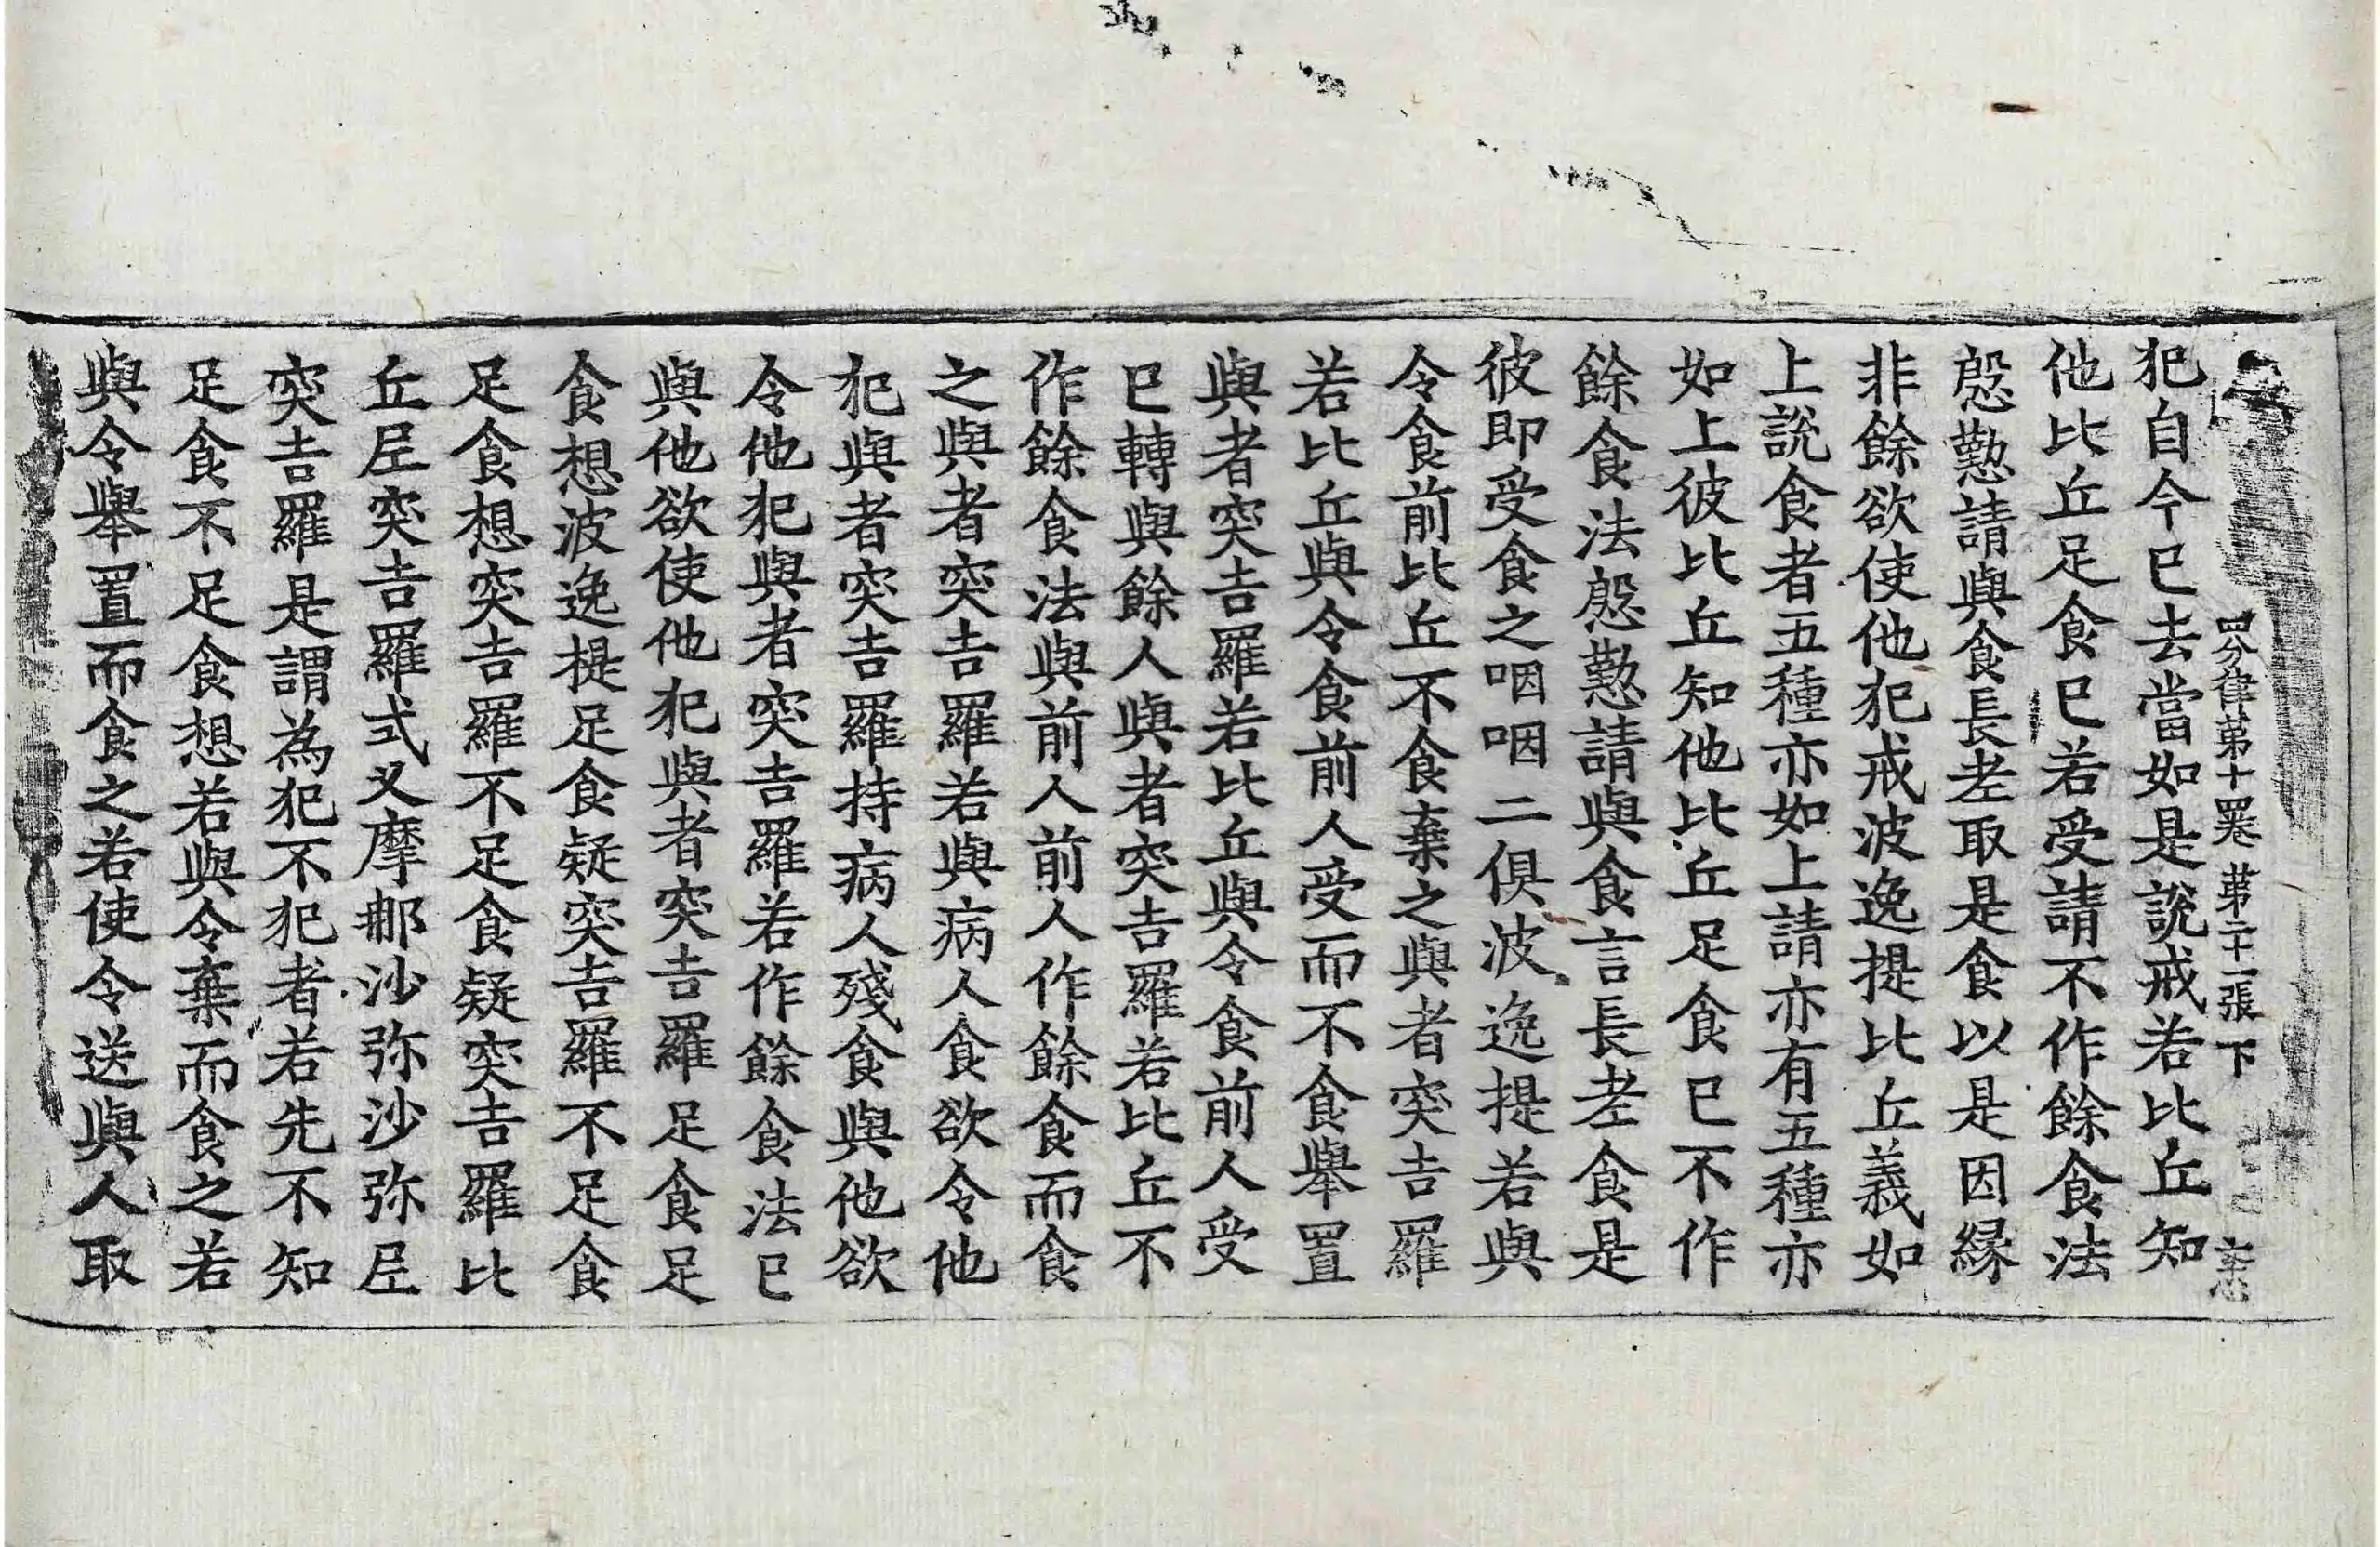 四分律第十四卷 第二十一張 下
犯自今已去當如是說戒若比丘知
他比丘足食已若受請不作餘食法
慇懃請與食長老取是食以是因縁
非餘欲使他犯戒波逸提比丘義如
上說食者五種亦如上請亦有五種亦
如上彼比丘知他比丘足食已不作
餘食法慇懃請與食言長老食是
彼即受食之咽咽二俱波逸提若與
令食前比丘不食棄之與者突吉羅
若比丘與令食前人受而不食舉置
與者突吉羅若比丘與令食前人受
已轉與餘人與者突吉羅若比丘不
作餘食法與前人前人作餘食而食
之與者突吉羅若與病人食欲令他
犯與者突吉羅持病人殘食與他欲
令他犯與者突吉羅若作餘食法已
與他欲使他犯與者突吉羅足食足
食想波逸提足食疑突吉羅不足食
足食想突吉羅不足食疑突吉羅比
丘尼突吉羅式叉摩那沙弥沙弥尼
突吉羅是謂為犯不犯者若先不知
足食不足食想若與令棄而食之若
與令舉置而食之若使令送與人取